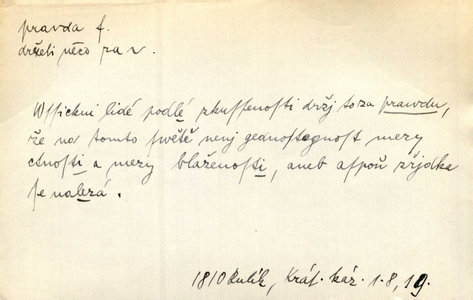 pravda f.
držeti něco za v.
Wssickni lidé podlé zkussenosti držj to za prawdu,
že na tomto swětě nenj gednostegnost mezy
ctnosti a mezy blaženosti, aneb aspoň zřjdka
se nalezá.
1810 Rulík, Krát. káz. 1.8, 19.